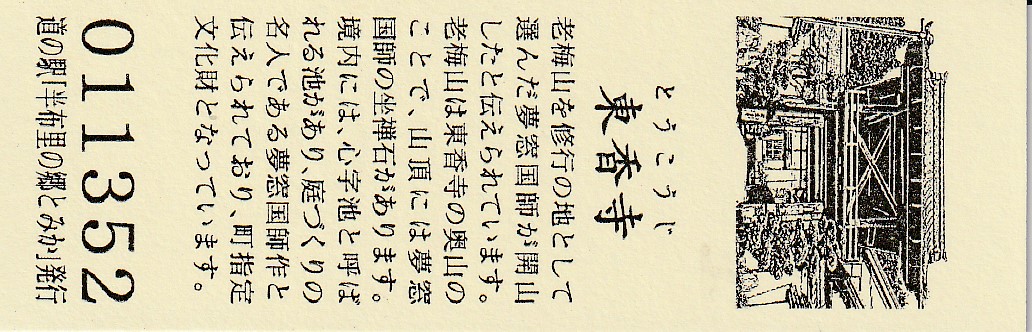 とうこうじ
東香寺
老梅山を修行の地として
選んだ夢窓国師が開山
したと伝えられています。
老梅山は東香寺の奥山の
ことで、山頂には夢窓
国師の坐禅石があります。
境内には、心字池と呼ば
れる池があり、庭づくりの
名人である夢窓国師作と
伝えられており、町指定
文化財となっています。
011352
道の駅「半布里の郷とみか」発行